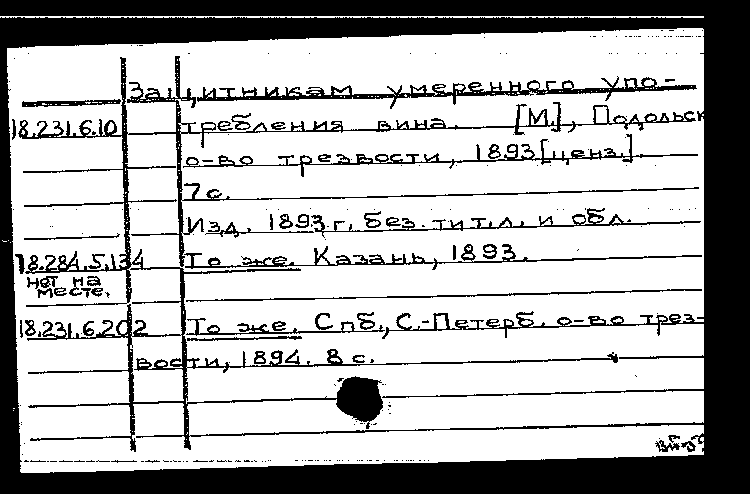 Защитникам умеренного упо-
18.231.6.10 требления вина. [М.], Подольск
о-во трезвости, 1893 [ценз.].
7 с.
Изд. 1893 г. без. тит. л. и обл.
18.284.5.134 То же. Казань, 1893.
нет на
месте.
18.231.6.202 То же. Спб., С.-Петерб. о-во трез-
вости, 1894. 8 с.